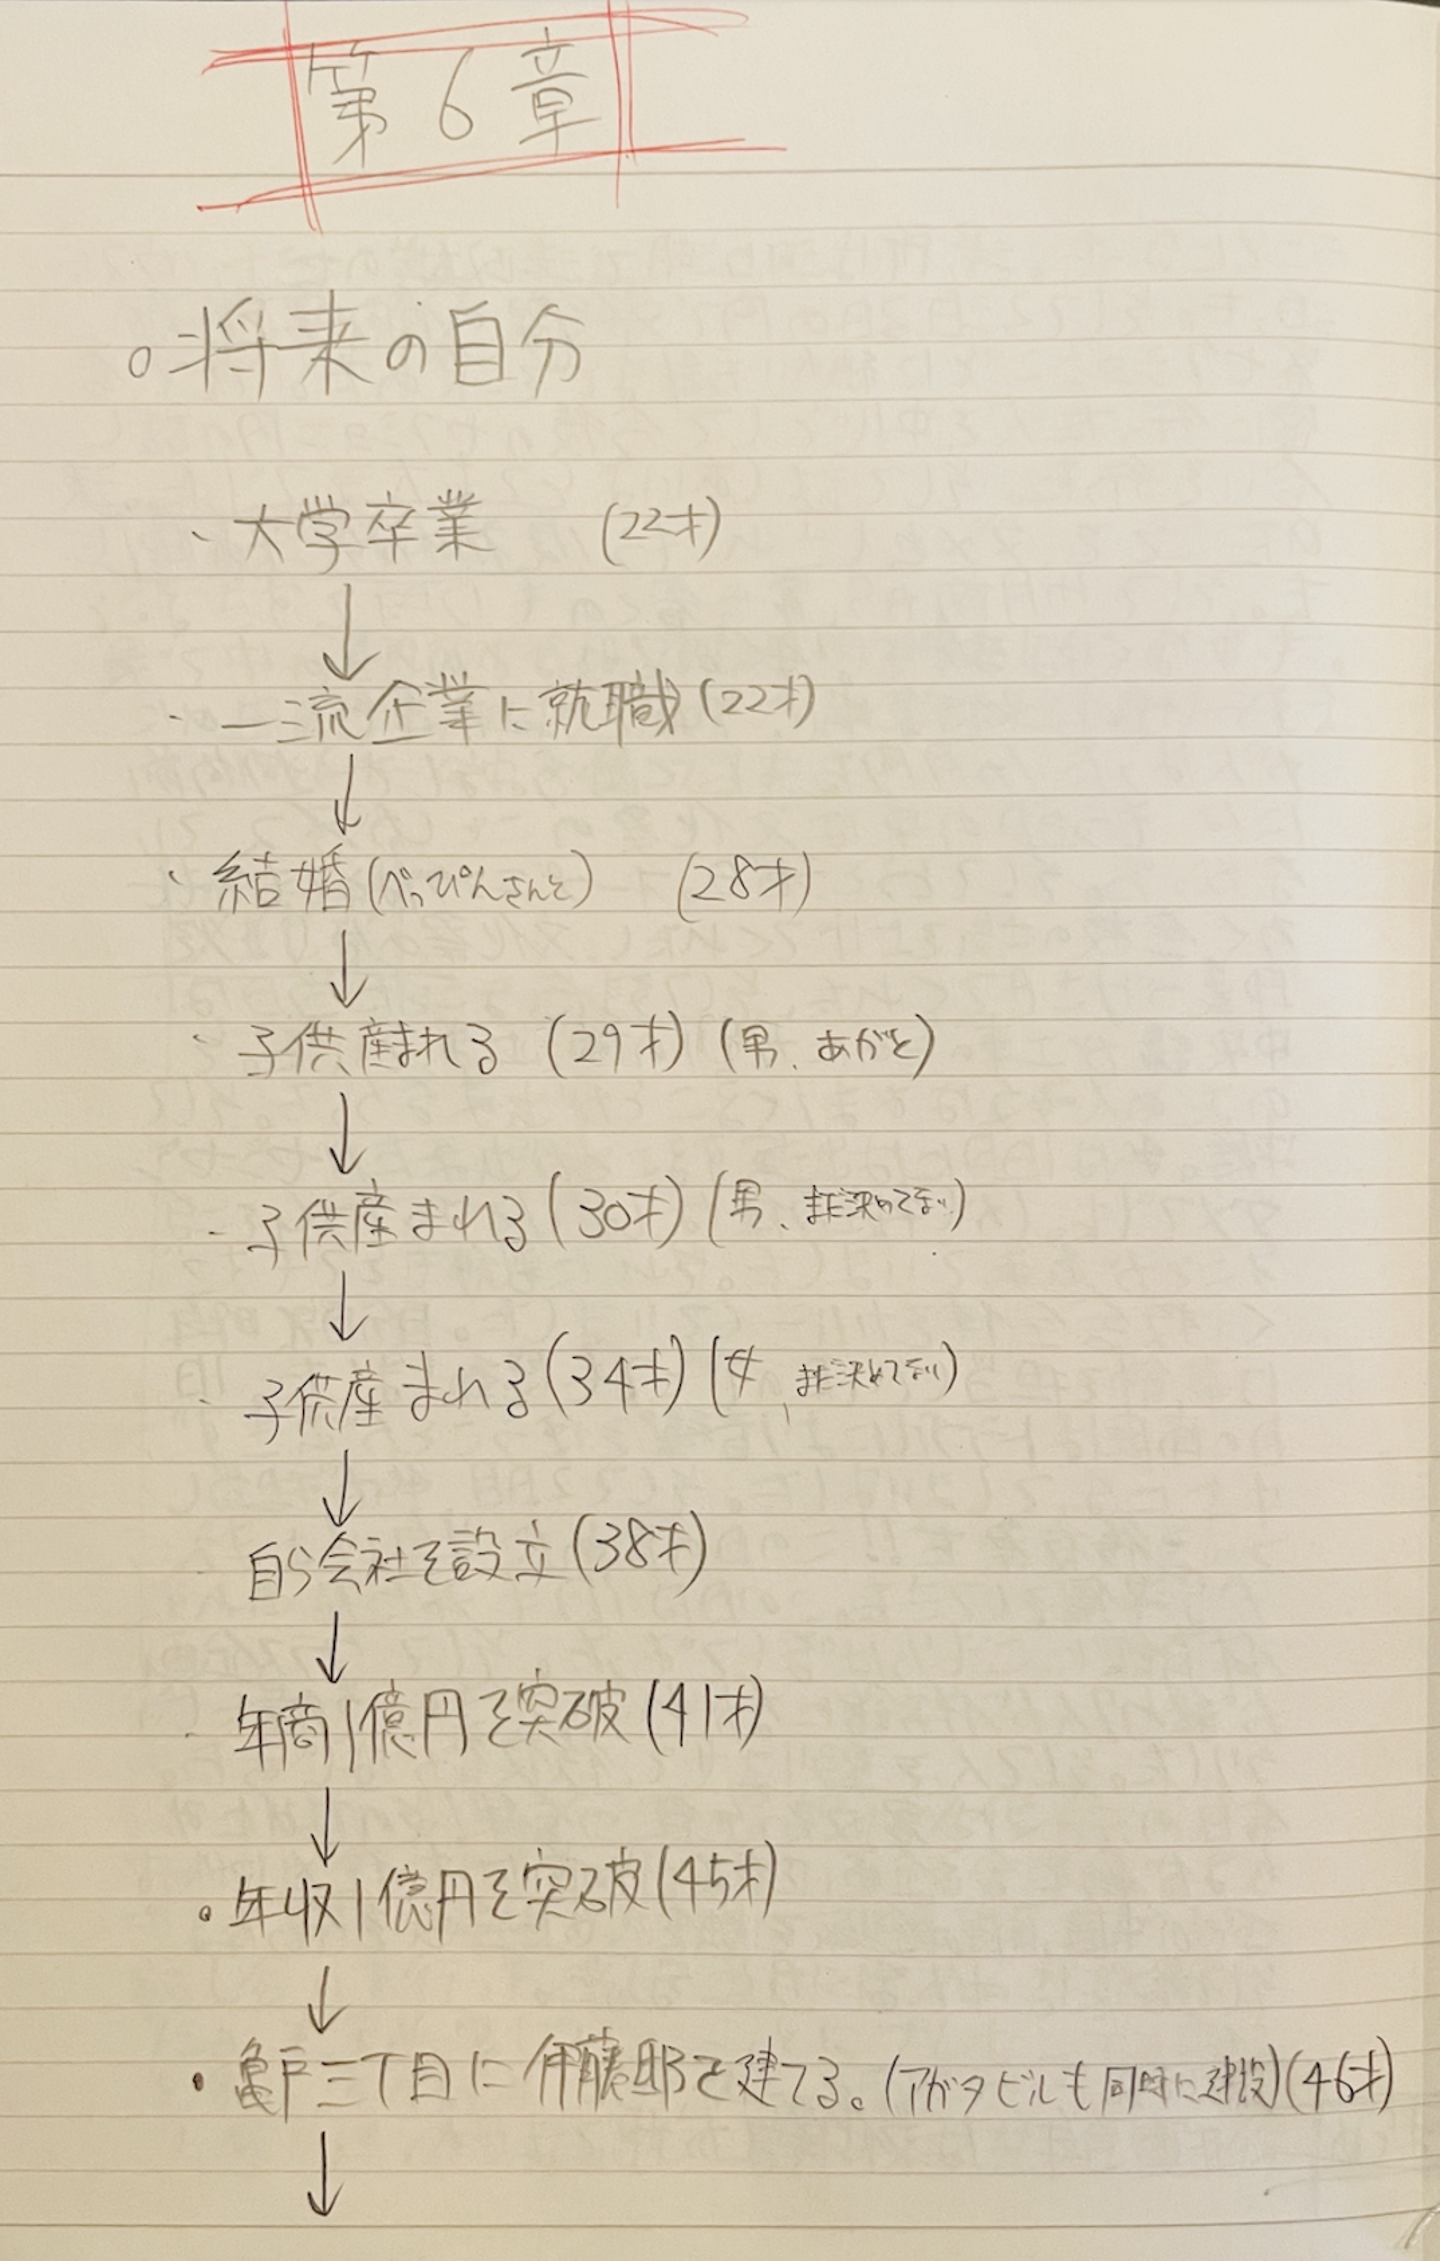 第6章
○将来の自分
・大学卒業 (22才)
↓
・一流企業に就職(22才)
↓
・結婚(べっぴんさんと) (28才)
↓
・子供産まれる (29才) (男、あがと)
↓
・子供産まれる(30才) (男、まだ決めてない)
↓
・子供産まれる(34才) (女、まだ決めてない)
↓
・自ら会社を設立(38才)
↓
・年商1億円を突破(41才)
↓
・年収1億円を突破(45才)
↓
・亀戸三丁目に伊藤邸を建てる。(アガタビルも同時に建設)(46才)
↓